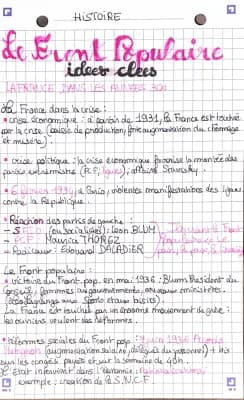 HISTOIRE
Le Front Populaire
idées clées
LA FRANCE DANS LES ANNÉES 30
La France dans la crise :
• crise économique : à partir de 1931, la France est touchée
par la crise (baisse de production, forte augmentation du chômage
et misère).
• crise politique : la crise économique favorise la montée des
partis extrémistes ( , ligues), affaire Stavisky.
• 6 février 1934, à Paris, violentes manifestations des ligues
contre la République.
• Réaction des partis de gauche :
- S.F.I.O (ou socialistes) : Léon BLUM
- PCF : Maurice THOREZ
- Radicaux : Edouard DALADIER
Front
Populaire
Le Front populaire :
• victoire du Front. pop. en mai 1936 : Blum Président du
conseil, femmes au gouvernement, nouveaux ministères.
La France est touchée par un énorme mouvement de grève :
les ouvriers veulent des réformes.
• réformes sociales du Front pop : juin 1936 Accords
Matignon (augmentation salaire, délégué du personnel) + lois
sur les congés payés et sur la semaine de 40h.
• L'état intervient dans l'économie :
exemple : création de la S.N.C.F.